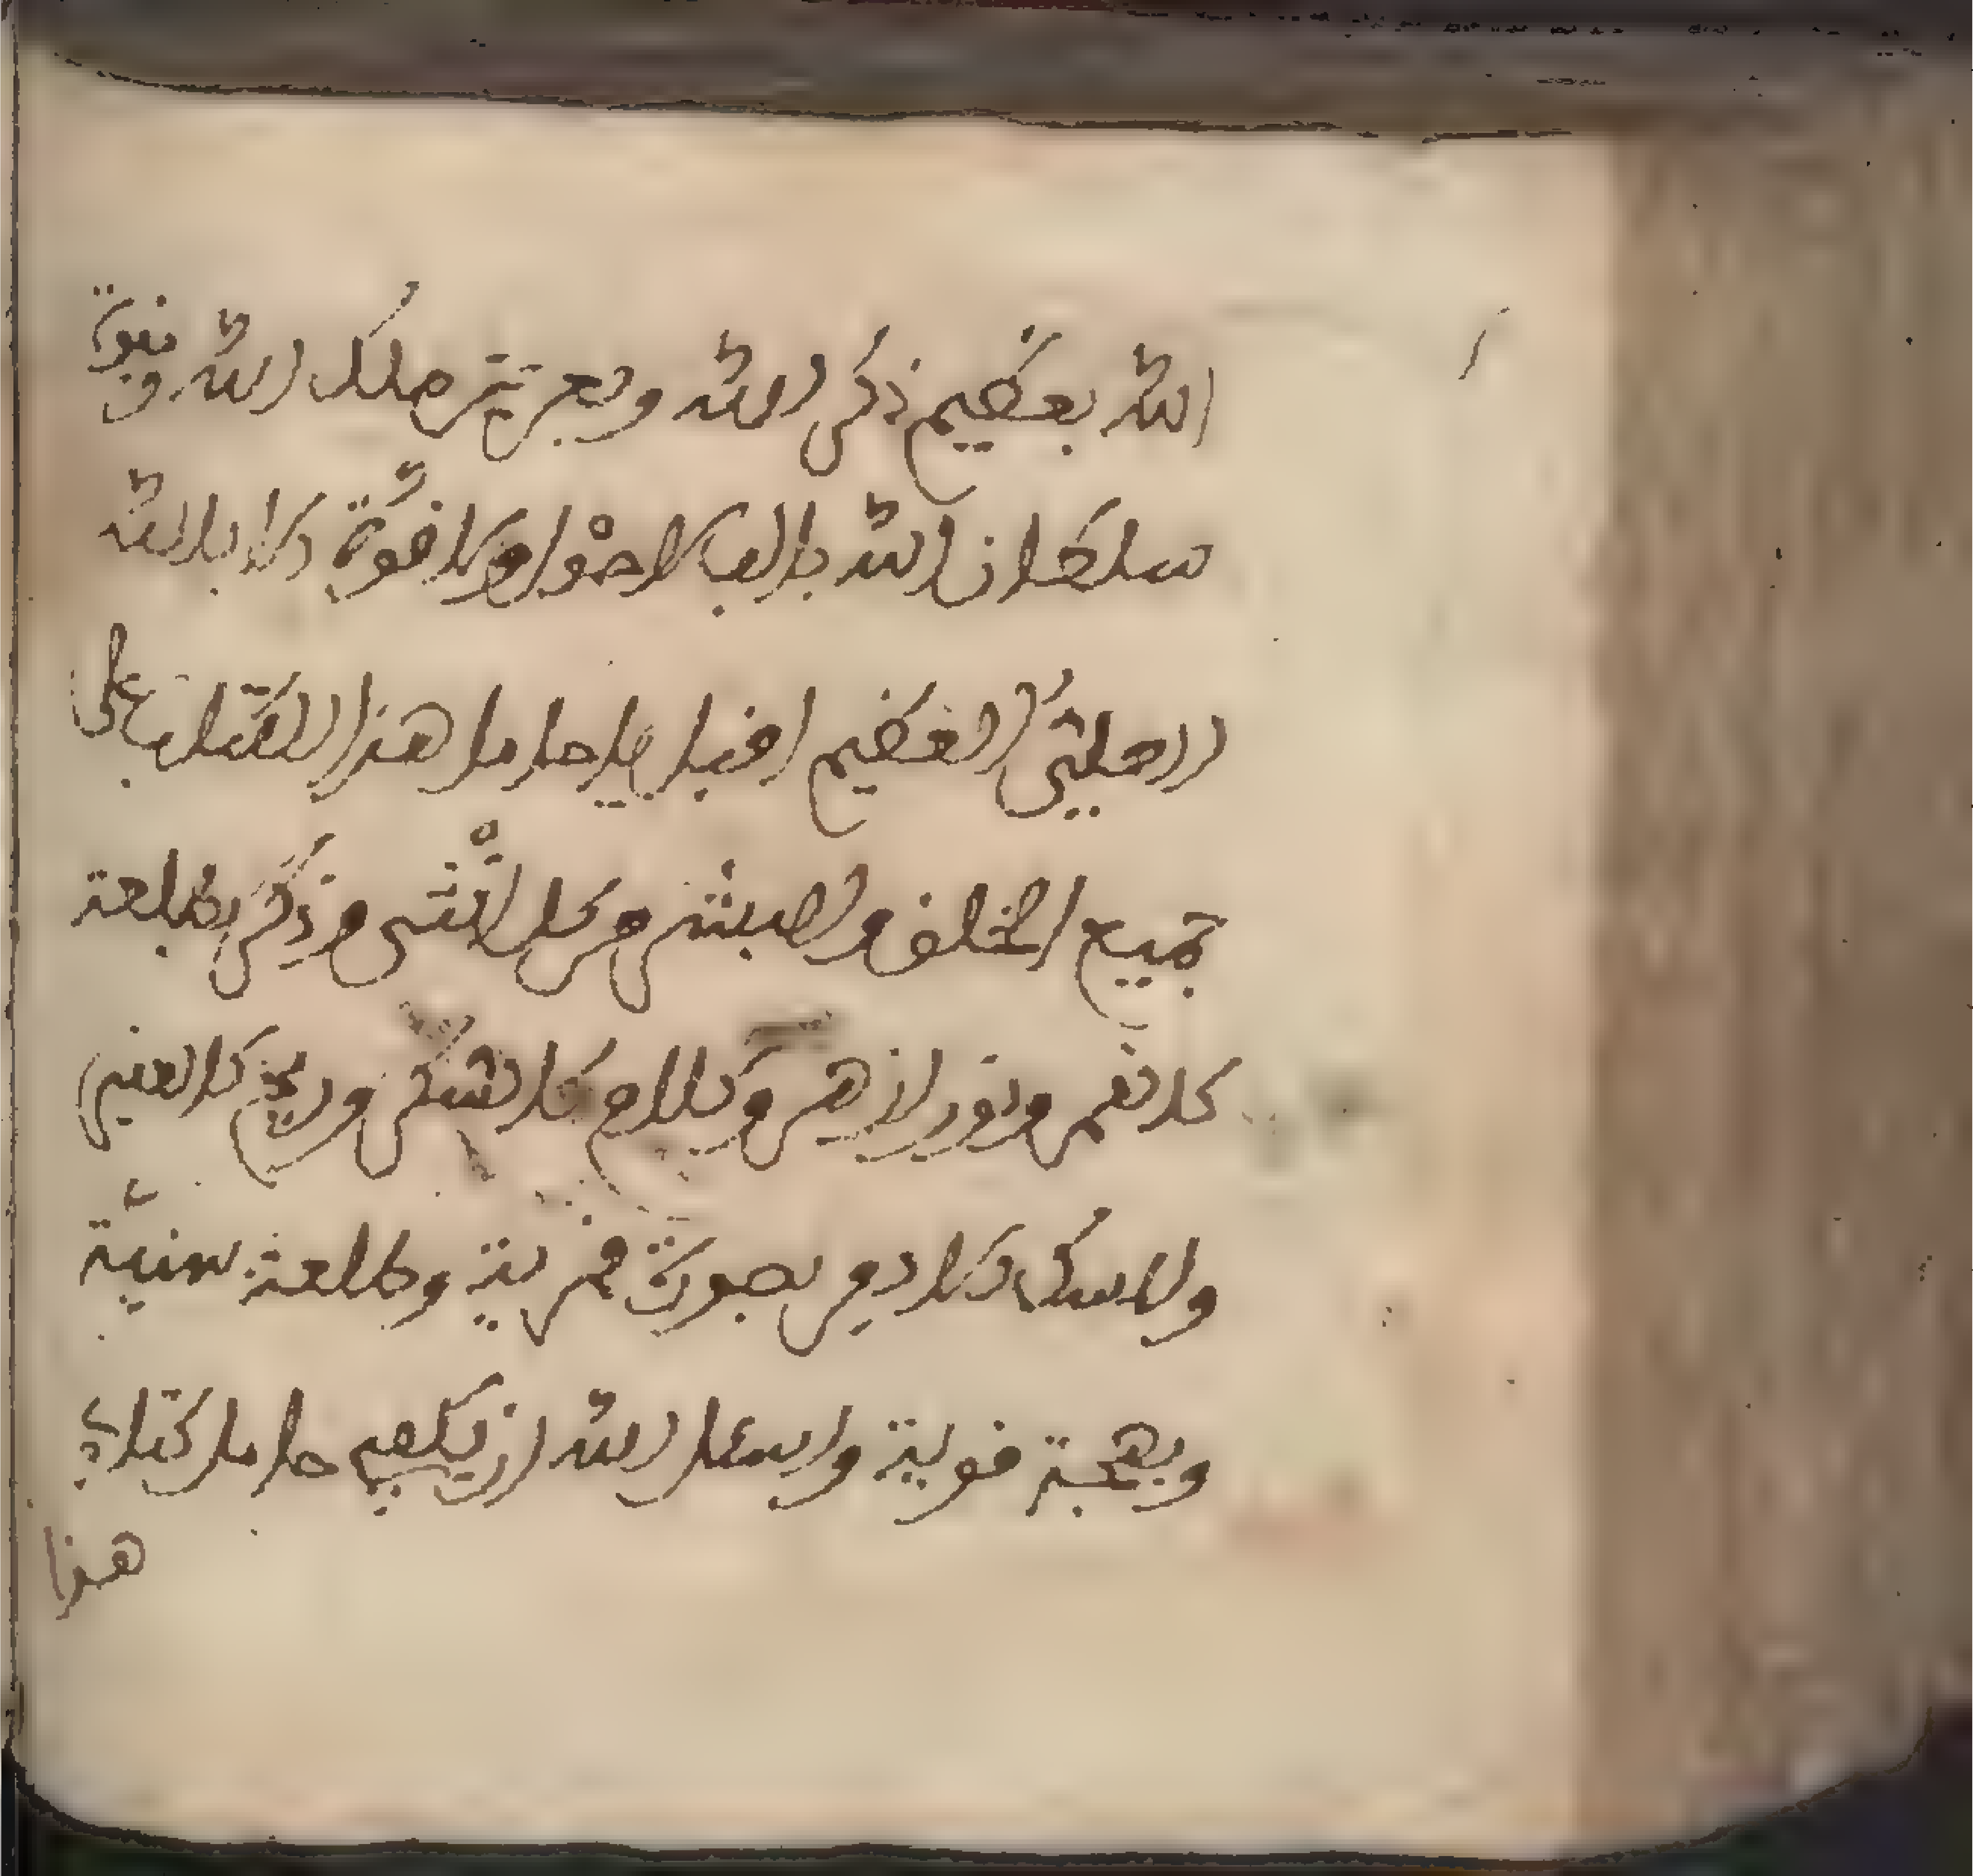 الله بعظيم ذكر الله وبعزيز ملك الله وبنوة
سلطان الله بالف لا حول ولا قوة الا بالله
العلي العظيم اقبل يا حامل هذا الكتاب على
جميع الخلق والبشر وكل انثى وذكر بطلعة
كالقمر ونور ازهر وكلام كالشكر وريح كالعنبر
والمسك الادفر بصورة قمرية وطلعة سنية
وبهجة قوية واسئل الله ان يكفي حامل كتابي
هذا